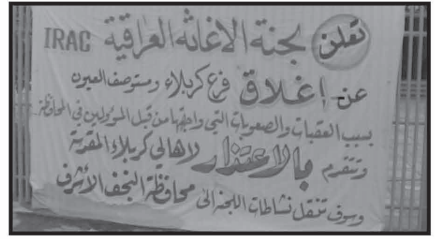 تعلن لجنة الاغاثة العراقية IRAC
عن إغلاق فرع كربلاء ومستوصف العيون
بسبب العقبات والصعوبات التي واجهتها من قبل المسؤولين في المحافظة
وتتقدم بالاعتذار لاهالي كربلاء المقدسة
وسوف تنقل نشاطات اللجنة الى محافظة النجف الأشرف